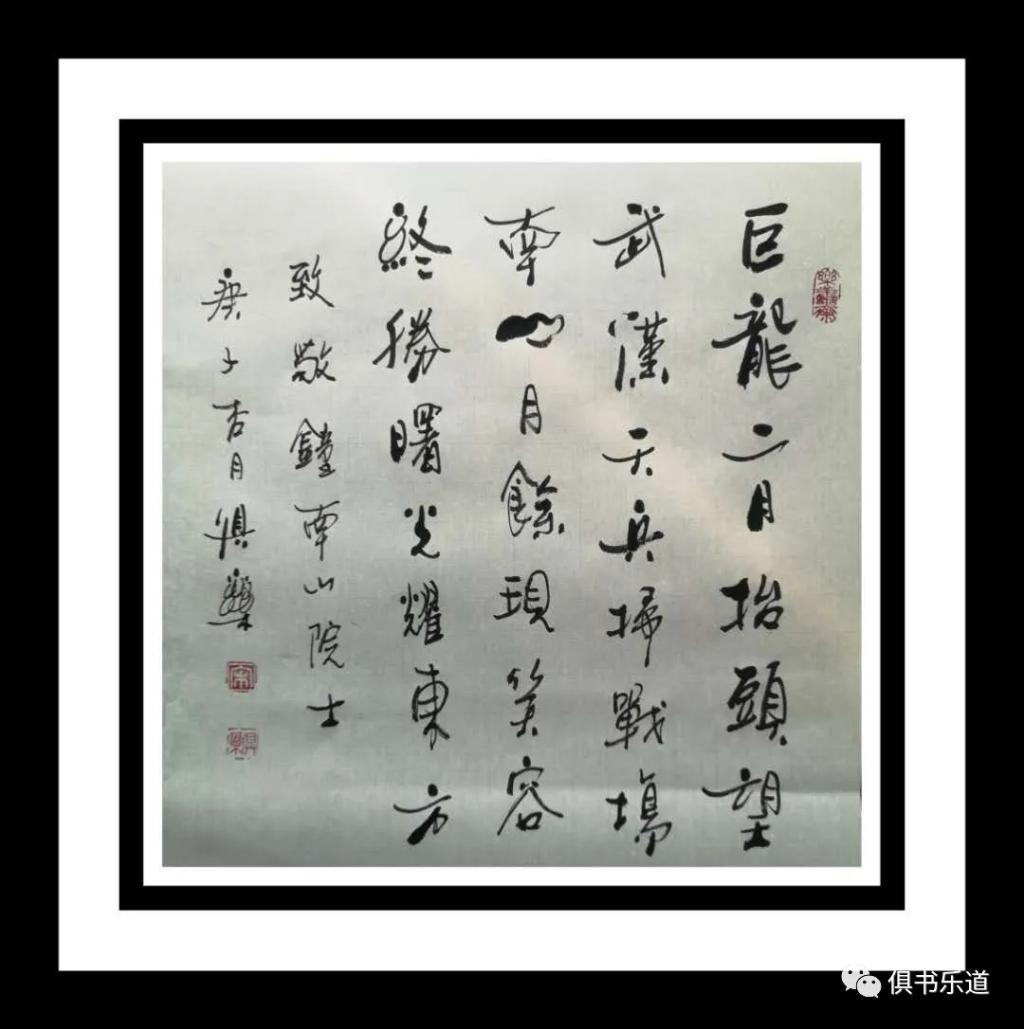 巨龍二月抬頭望
武漢天兵掃戰場
南山月餘現笑容
終勝曙光耀東方
致敬鐘南山院士
庚子杏月俱樂
俱书乐道